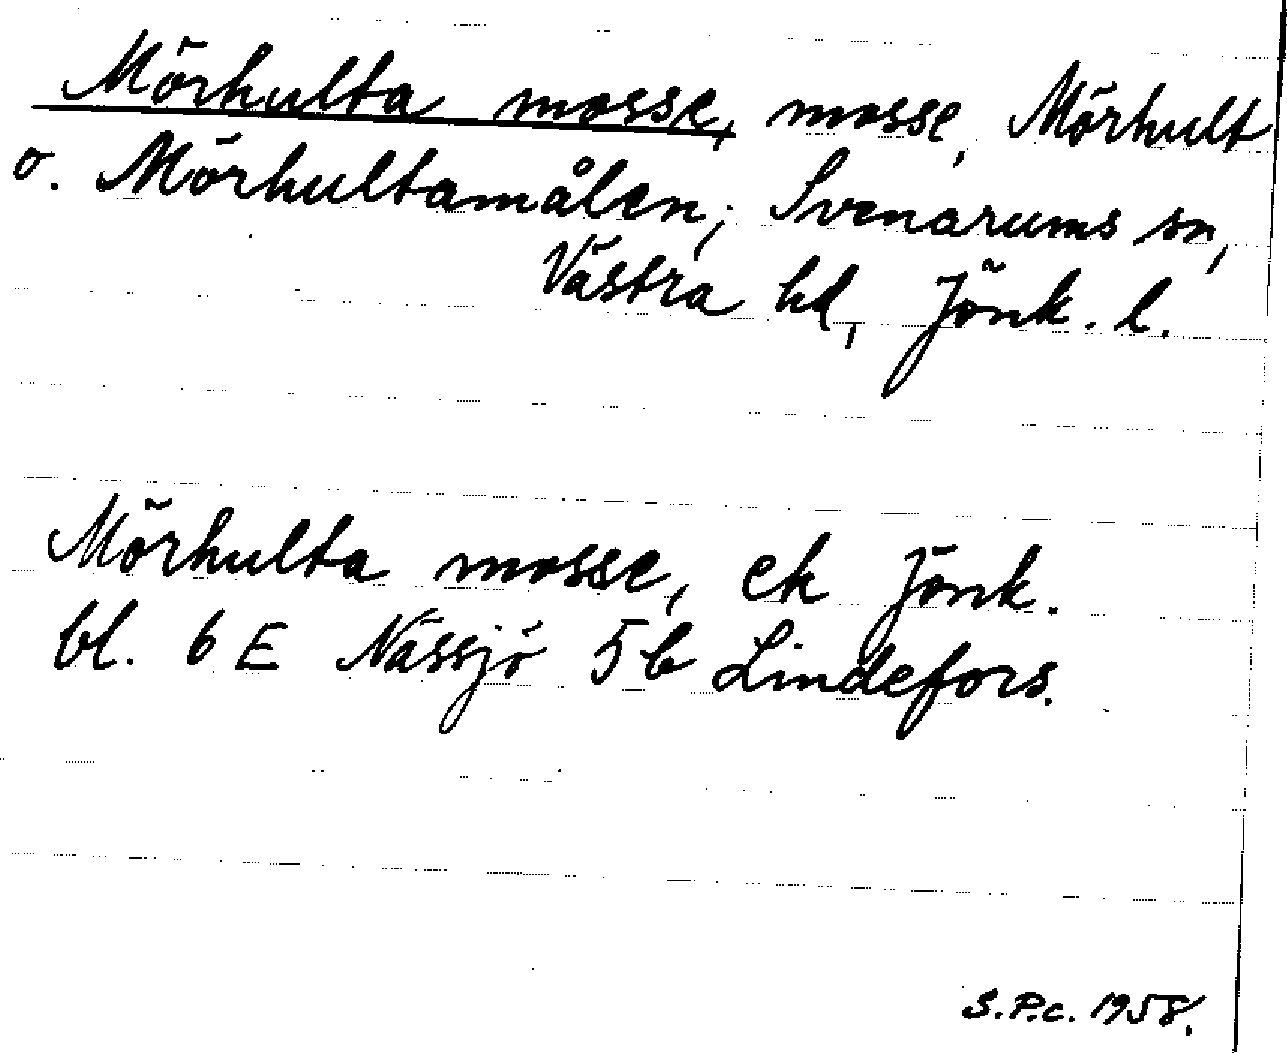 Mörhulta mosse, mosse, Mörhult
o. Mörhultamålen, Svenarums sn,
Västra hd, Jönk. l.
Mörhulta mosse, ek Jönk.
bl. 6 E Nässjö 5b Lindefors.
S.P.c. 1958.